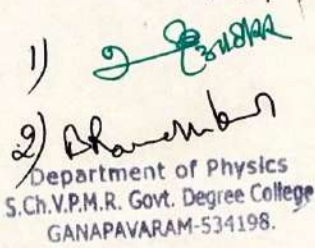 1)
2)
Department of Physics
S.Ch.V.P.M.R. Govt. Degree College
GANAPAVARAM-534198.